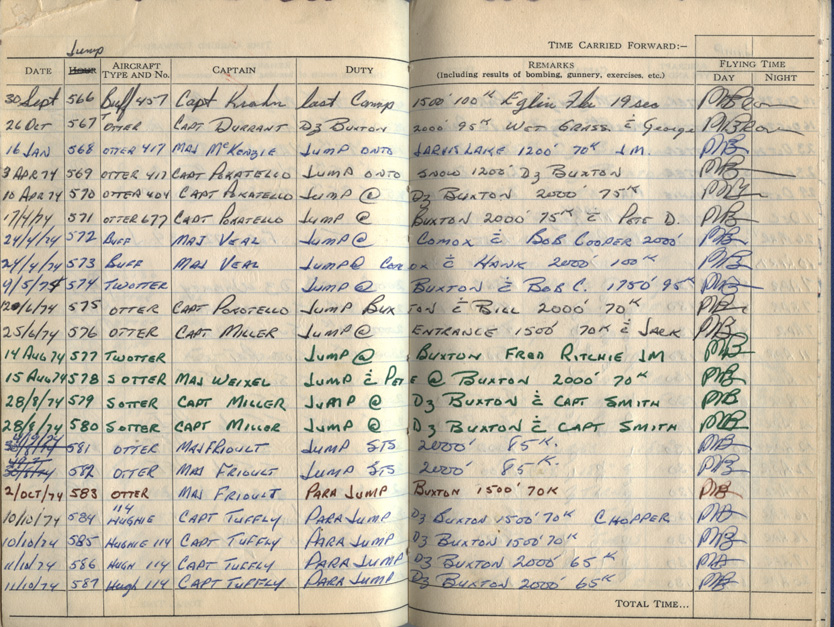 Jump
TIME CARRIED FORWARD:—
DATE HOUR AIRCRAFT TYPE AND NO. CAPTAIN DUTY REMARKS (Including results of bombing, gunnery, exercises, etc.) FLYING TIME DAY NIGHT
30 Sept 566 Buff 457 Capt Krahn last Camp 1500' 100K Eglin Fla 19 sec
26 OCT 567 TOTTER CAPT DURRANT DZ BUXTON 2000' 95K WET GRASS. c̄ George
16 JAN 568 OTTER 417 MAJ McKENZIE JUMP ONTO JARVIS LAKE 1200' 70K J.M.
3 APR 74 569 OTTER 417 CAPT POKATELLO JUMP ONTO SNOW 1200' DZ BUXTON
10 APR 74 570 OTTER 404 CAPT POKATELLO JUMP @ DZ BUXTON 2000' 75K
17/4/74 571 OTTER 677 CAPT POKATELLO JUMP @ BUXTON 2000' 75K c̄ PETE D.
24/4/74 572 BUFF MAJ VEAL JUMP @ COMOX c̄ BOB COOPER 2000'
24/4/74 573 BUFF MAJ VEAL JUMP @ COMOX c̄ HANK 2000' 100K
9/5/74 574 TWOTTER JUMP @ BUXTON c̄ BOB C. 1750' 95K
20/6/74 575 OTTER CAPT POKOTELLO JUMP BUXTON c̄ BILL 2000' 70K
25/6/74 576 OTTER CAPT MILLER JUMP @ ENTRANCE 1500' 70K c̄ JACK
14 AUG 74 577 TWOTTER JUMP @ BUXTON FRED RITCHIE JM
15 AUG 74 578 SOTTER MAJ WEIXEL JUMP c̄ PETE @ BUXTON 2000' 70K
28/8/74 579 SOTTER CAPT MILLER JUMP @ DZ BUXTON c̄ CAPT SMITH
28/8/74 580 SOTTER CAPT MILLOR JUMP @ DZ BUXTON c̄ CAPT SMITH
581 OTTER MAJ FRIOULT JUMP STS 2000' 85K.
582 OTTER MAJ FRIOULT JUMP STS 2000' 85K.
2/OCT/74 583 OTTER MAJ FRIOULT PARA JUMP BUXTON 1500' 70K
10/10/74 584 HUGHIE 114 CAPT TUFFLY PARA JUMP DZ BUXTON 1500' 70K CHOPPER
10/10/74 585 HUGHIE 114 CAPT TUFFLY PARA JUMP DZ BUXTON 1500' 70K
11/10/74 586 HUGH 114 CAPT TUFFLY PARA JUMP DZ BUXTON 2000' 65K
11/10/74 587 Hugh 114 CAPT TUFFLY PARA JUMP DZ BUXTON 2000' 65K
TOTAL TIME...